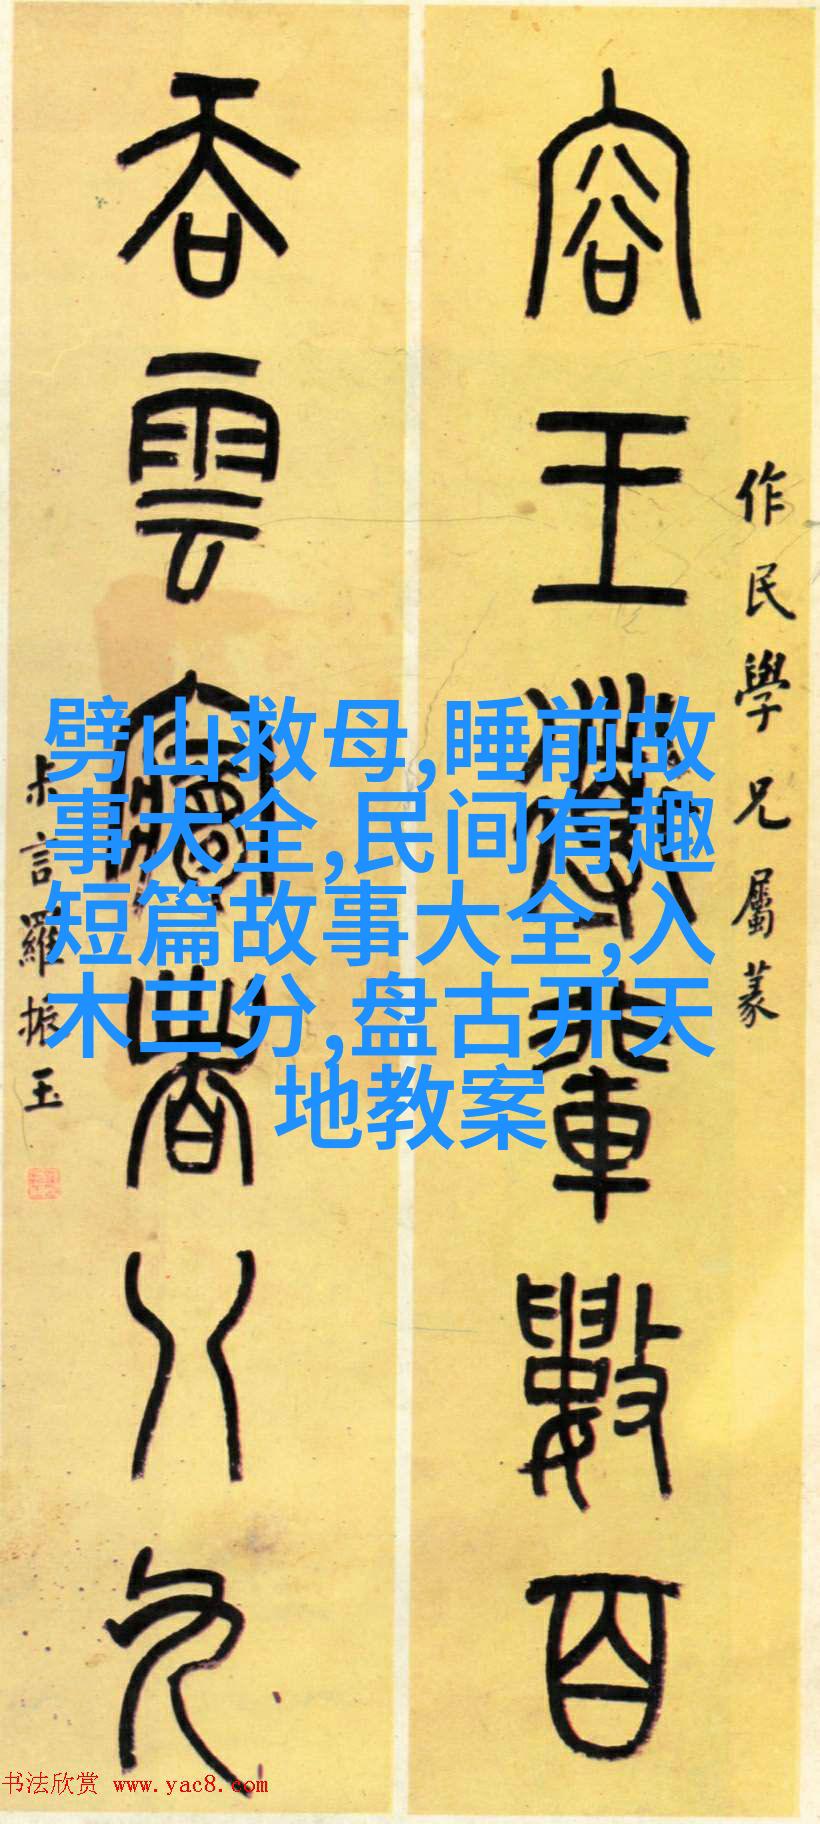 作民學兄屬篆
容王輩數百
吞雲夢者八九
叔言羅振玉
劈山救母,睡前故
事大全,民间有趣
短篇故事大全,入
木三分,盘古开天
地教案
书法欣赏 www.yac8.com